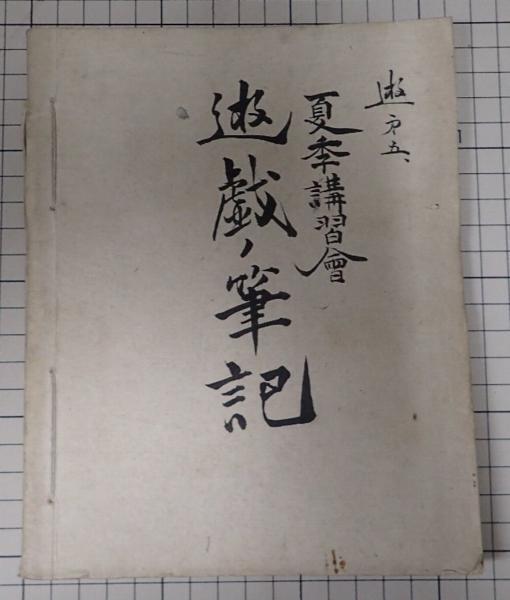 遊才五、
夏季講習會
遊戯ノ筆記